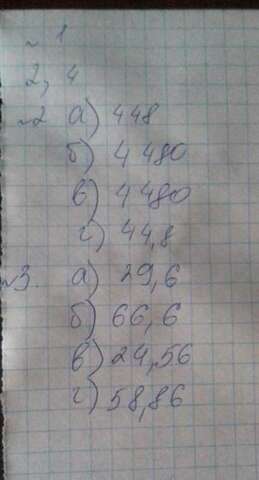 ~ 1
2, 4
~2 а) 448
б) 4480
в) 4480
г) 44,8
~3. а) 29,6
б) 66,6
в) 24,56
г) 58,86